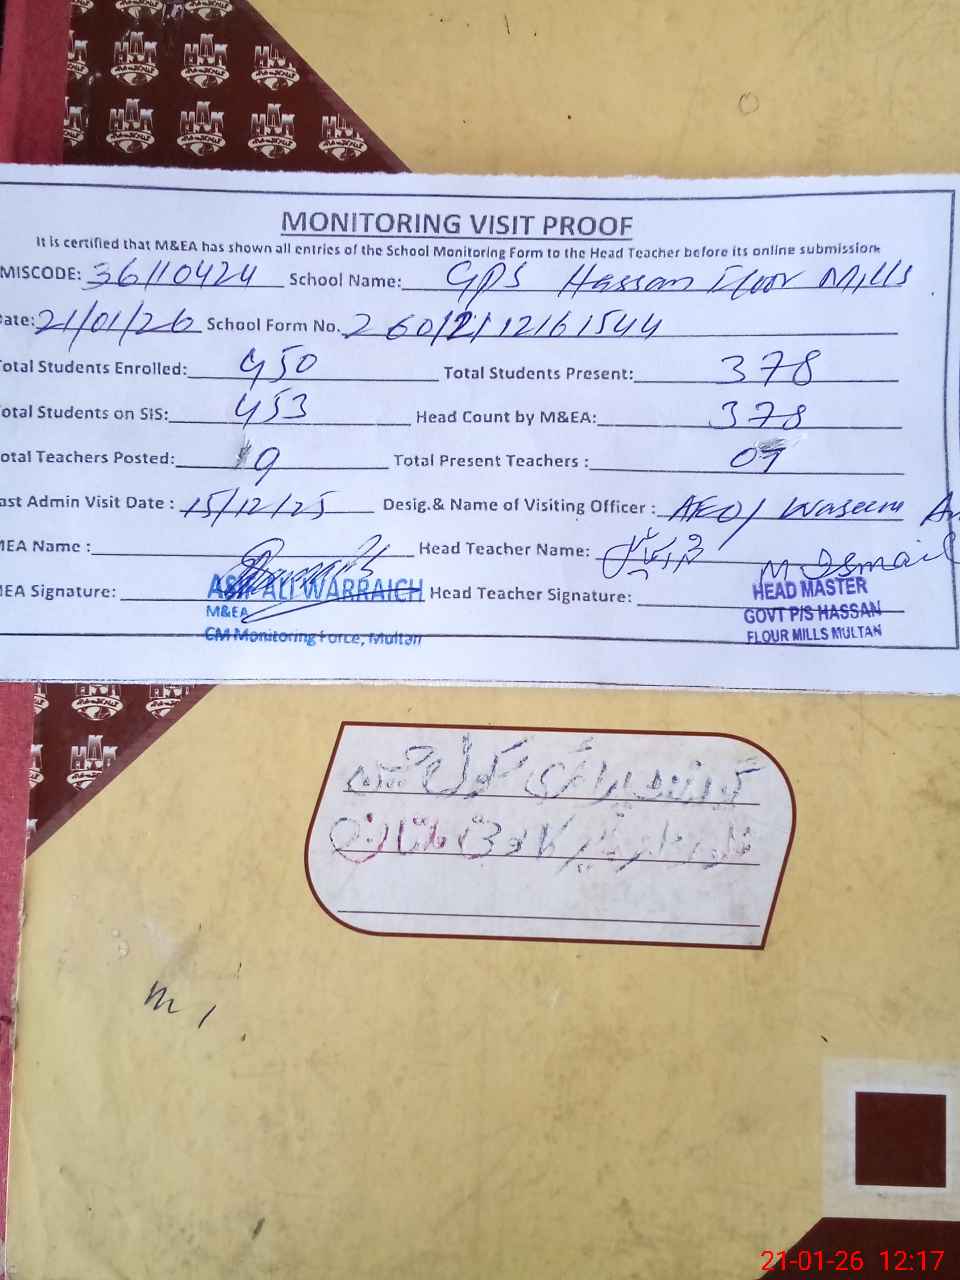 MONITORING VISIT PROOF
It is certified that M&EA has shown all entries of the School Monitoring Form to the Head Teacher before its online submission
MISCODE: 36110424 School Name: GPS Hassan Floor Mills
ate: 21/01/26 School Form No. 26012112161544
otal Students Enrolled: 450 Total Students Present: 378
otal Students on SIS: 453 Head Count by M&EA: 378
otal Teachers Posted: 9 Total Present Teachers : 09
ast Admin Visit Date : 15/12/25 Desig.& Name of Visiting Officer : AEO/ Waseem
MEA Name : Head Teacher Name: M Ismail
EA Signature: ALI WARRAICH Head Teacher Signature: HEAD MASTER
M&EA GOVT P/S HASSAN
CM Monitoring Force, Multan FLOUR MILLS MULTAN
گورنمنٹ پرائمری سکول حسن
فلور ملز ملتان
m
21-01-26 12:17